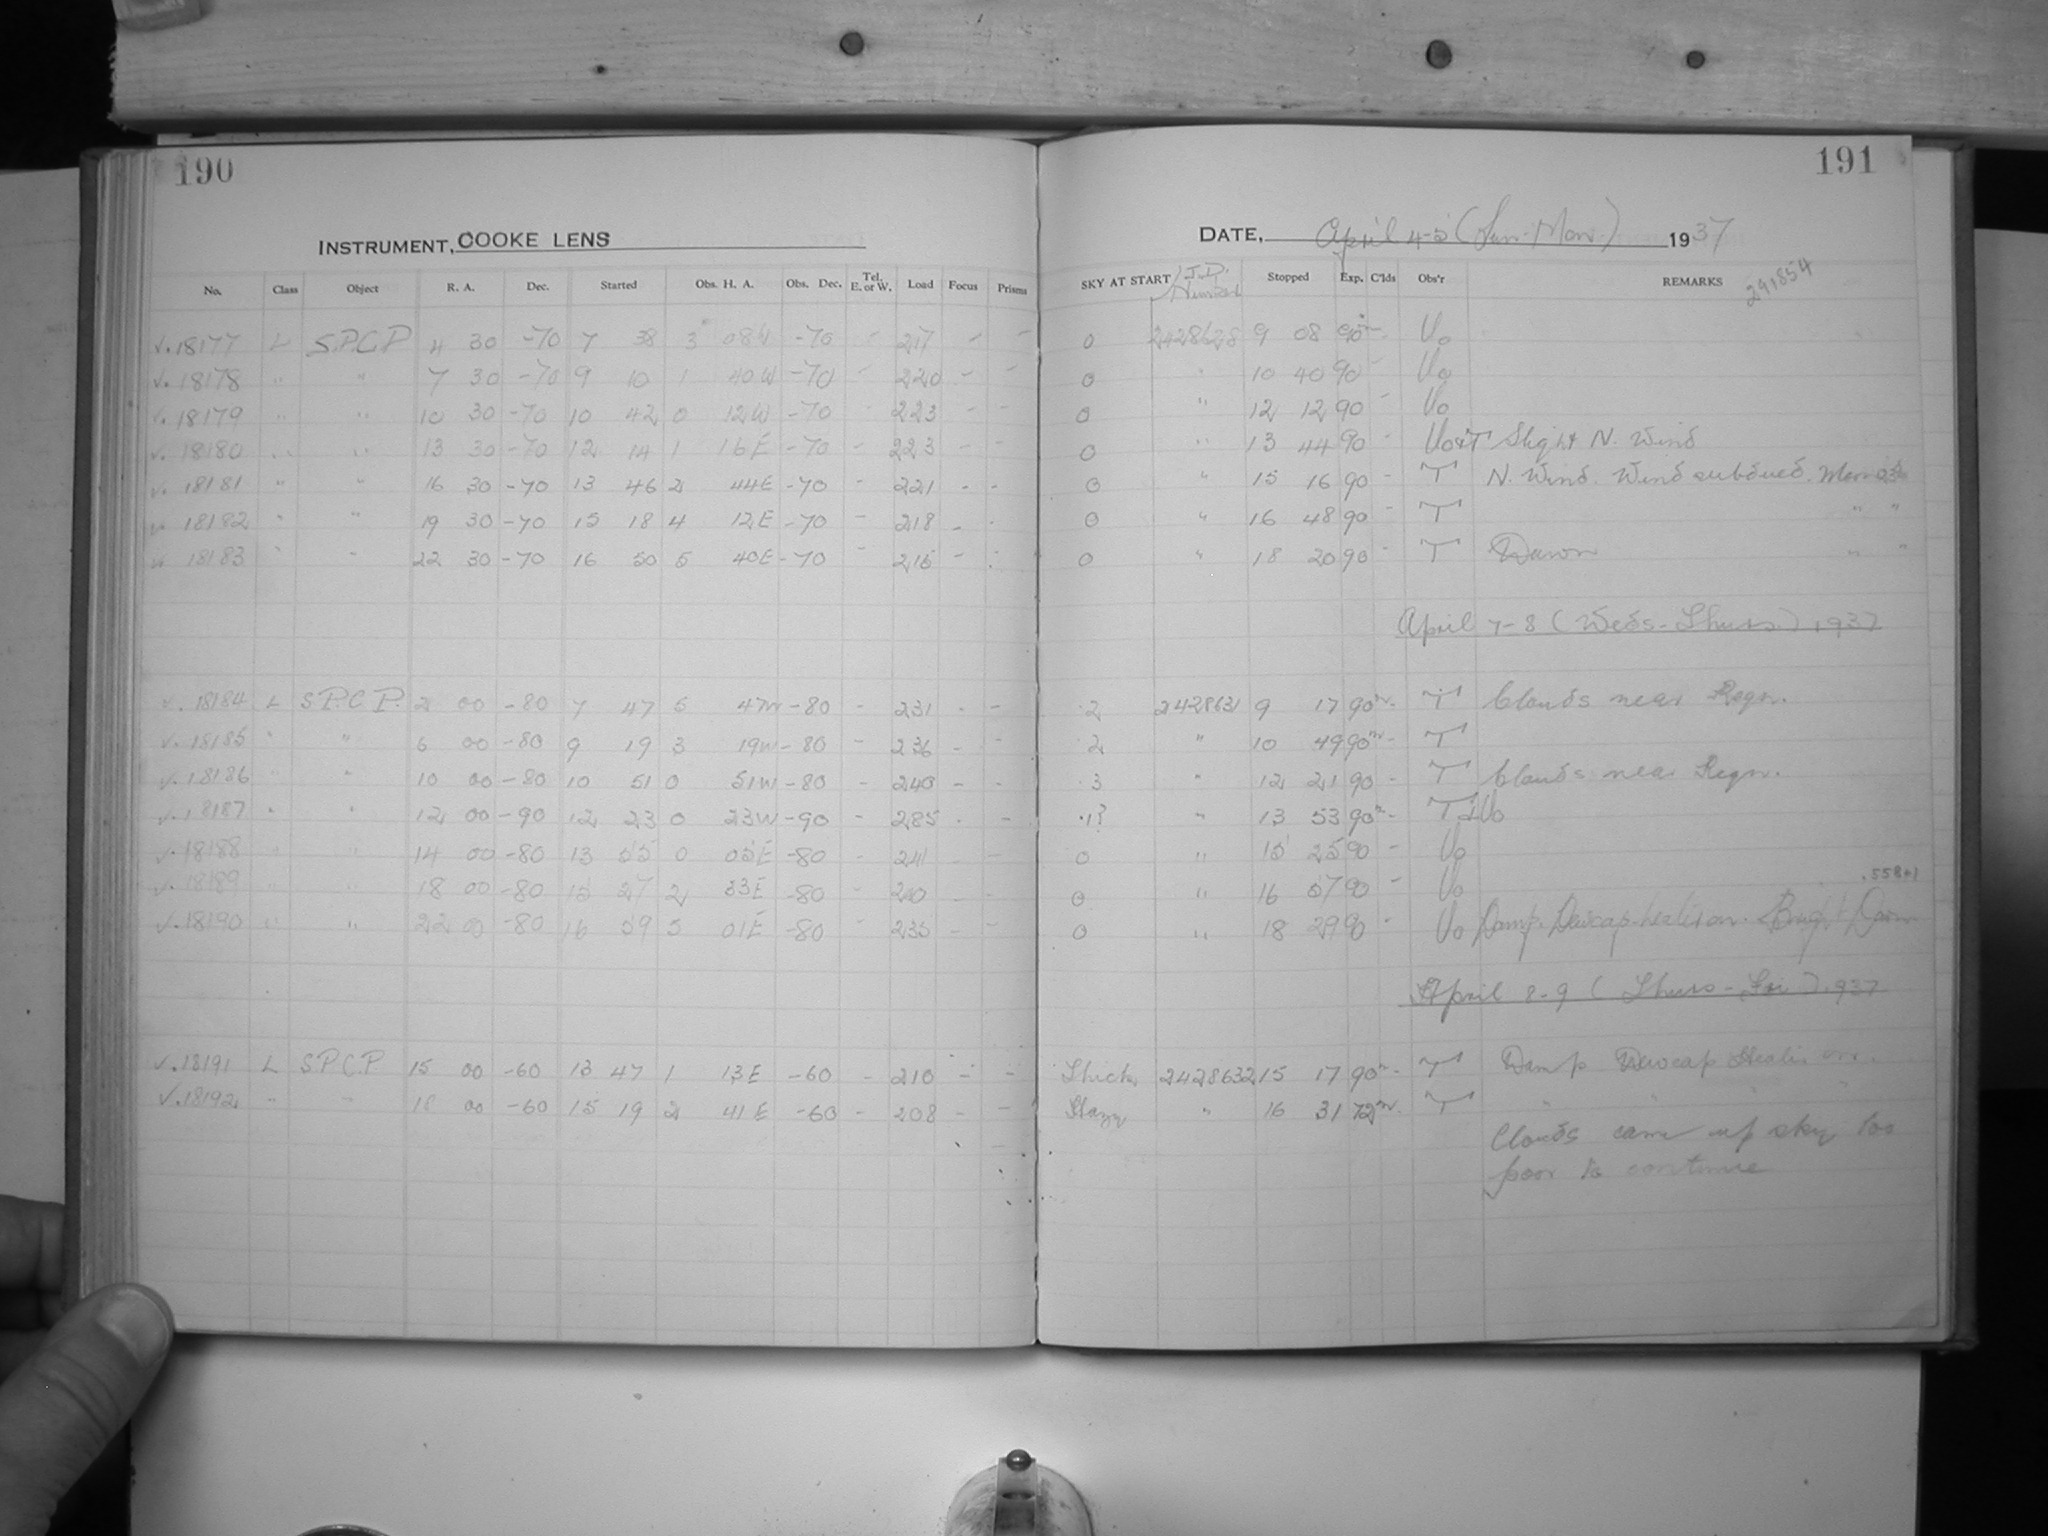 190
INSTRUMENT, COOKE LENS
No. Class Object R. A. Dec. Started Obs. H. A. Obs. Dec. Tel. E. or W. Load Focus Prisms
v. 18177 L S.P.C.P 4 30 -70 7 38 3 08W -70 - 217 - -
v. 18178 " " 7 30 -70 9 10 1 40W -70 - 220 - -
v. 18179 " " 10 30 -70 10 42 0 12W -70 - 223 - -
v. 18180 " " 13 30 -70 12 14 1 16E -70 - 223 - -
v. 18181 " " 16 30 -70 13 46 2 44E -70 - 221 - -
v. 18182 " " 19 30 -70 15 18 4 12E -70 - 218 - -
v. 18183 " " 22 30 -70 16 50 5 40E -70 - 215 - -
v. 18184 L S.P.C.P. 2 00 -80 7 47 5 47W -80 - 231 - -
v. 18185 " " 6 00 -80 9 19 3 19W -80 - 236 - -
v. 18186 " " 10 00 -80 10 51 0 51W -80 - 240 - -
v. 18187 " " 12 00 -90 12 23 0 23W -90 - 285 - -
v. 18188 " " 14 00 -80 13 55 0 05E -80 - 241 - -
v. 18189 " " 18 00 -80 15 27 2 33E -80 - 240 - -
v. 18190 " " 22 00 -80 16 59 5 01E -80 - 235 - -
v. 18191 L S.P.C.P 15 00 -60 13 47 1 13E -60 - 210 - -
v. 18192 " " 18 00 -60 15 19 2 41E -60 - 208 - -
191
DATE, April 4-5 (Sun-Mon.) 1937
SKY AT START J.D. Number Stopped Exp. C'lds Obs'r REMARKS 291854
0 2428628 9 08 90m - Uo
0 " 10 40 90 - Uo
0 " 12 12 90 - Uo
0 " 13 44 90 - Uo&T Slight N. Wind
0 " 15 16 90 - T N. Wind. Wind subdued.
0 " 16 48 90 - T " "
0 " 18 20 90 - T Dawn " "
April 7-8 (Weds-Thurs.) 1937
2 2428631 9 17 90m - T Clouds near Regn.
2 " 10 49 90m - T
3 " 12 21 90 - T Clouds near Regn.
1? " 13 53 90m - T&Uo
0 " 15 25 90 - Uo
0 " 16 57 90 - Uo .558+1
0 " 18 29 90 - Uo Damp. Dewcap heater on. Bright Dawn
April 8-9 (Thurs-Fri) 1937
Thick 2428632 15 17 90m - T Damp Dewcap Heater on.
Hazy " 16 31 72m - T " " " "
Clouds came up sky too
poor to continue